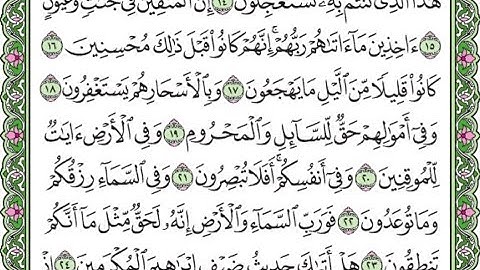 هَٰذَا ٱلَّذِى كُنتُم بِهِۦ تَسْتَعْجِلُونَ ١٤ إِنَّ ٱلْمُتَّقِينَ فِى جَنَّٰتٍ وَعُيُونٍ
١٥ ءَاخِذِينَ مَآ ءَاتَىٰهُمْ رَبُّهُمْ ۚ إِنَّهُمْ كَانُوا۟ قَبْلَ ذَٰلِكَ مُحْسِنِينَ ١٦
كَانُوا۟ قَلِيلًا مِّنَ ٱلَّيْلِ مَا يَهْجَعُونَ ١٧ وَبِٱلْأَسْحَارِ هُمْ يَسْتَغْفِرُونَ ١٨
وَفِىٓ أَمْوَٰلِهِمْ حَقٌّ لِّلسَّآئِلِ وَٱلْمَحْرُومِ ١٩ وَفِى ٱلْأَرْضِ ءَايَٰتٌ
لِّلْمُوقِنِينَ ٢٠ وَفِىٓ أَنفُسِكُمْ ۚ أَفَلَا تُبْصِرُونَ ٢١ وَفِى ٱلسَّمَآءِ رِزْقُكُمْ
وَمَا تُوعَدُونَ ٢٢ فَوَرَبِّ ٱلسَّمَآءِ وَٱلْأَرْضِ إِنَّهُۥ لَحَقٌّ مِّثْلَ مَآ أَنَّكُمْ
تَنطِقُونَ ٢٣ هَلْ أَتَىٰكَ حَدِيثُ ضَيْفِ إِبْرَٰهِيمَ ٱلْمُكْرَمِينَ ٢٤ إِذْ